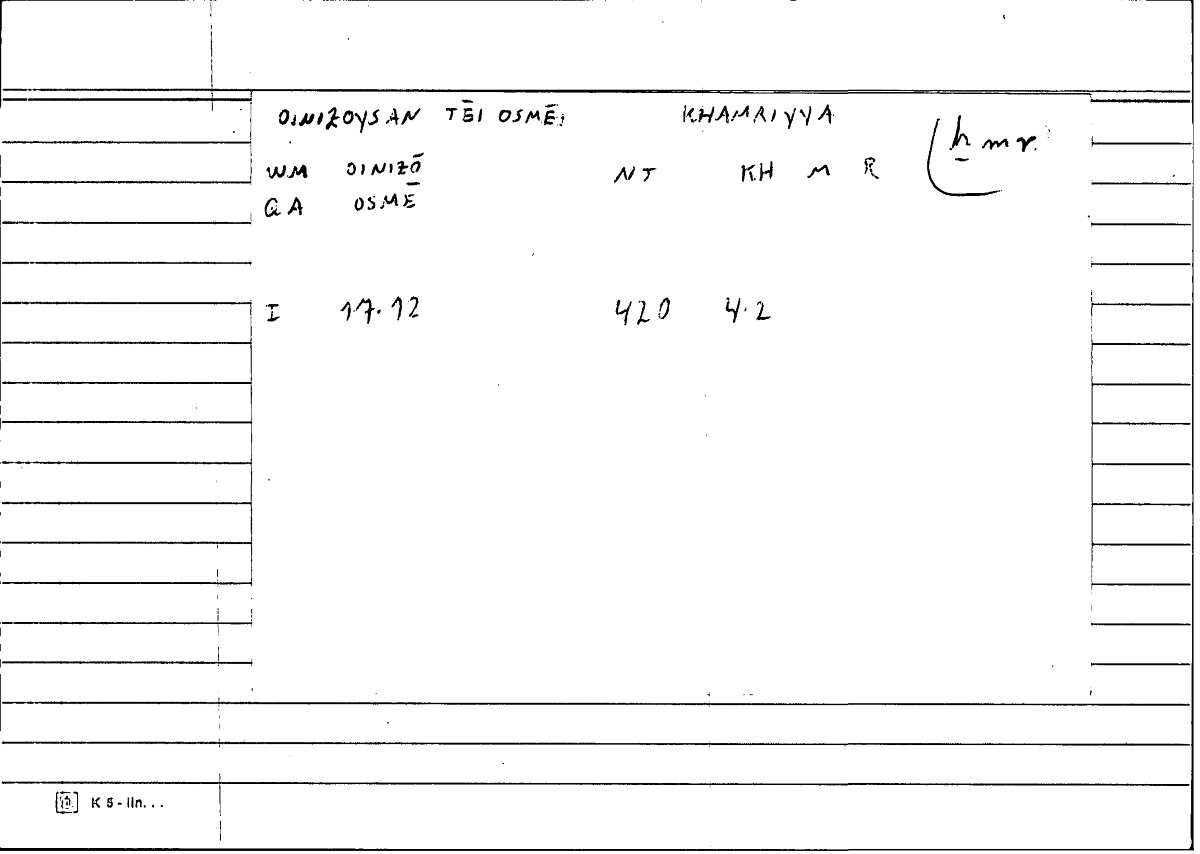 OINIZOYSAN TĒI OSMĒI KHAMRIYYA
ḫmr.
WM OINIZŌ NT KH M R
QA OSMĒ
I 17.12 420 4.2
K 5 - lln. . .